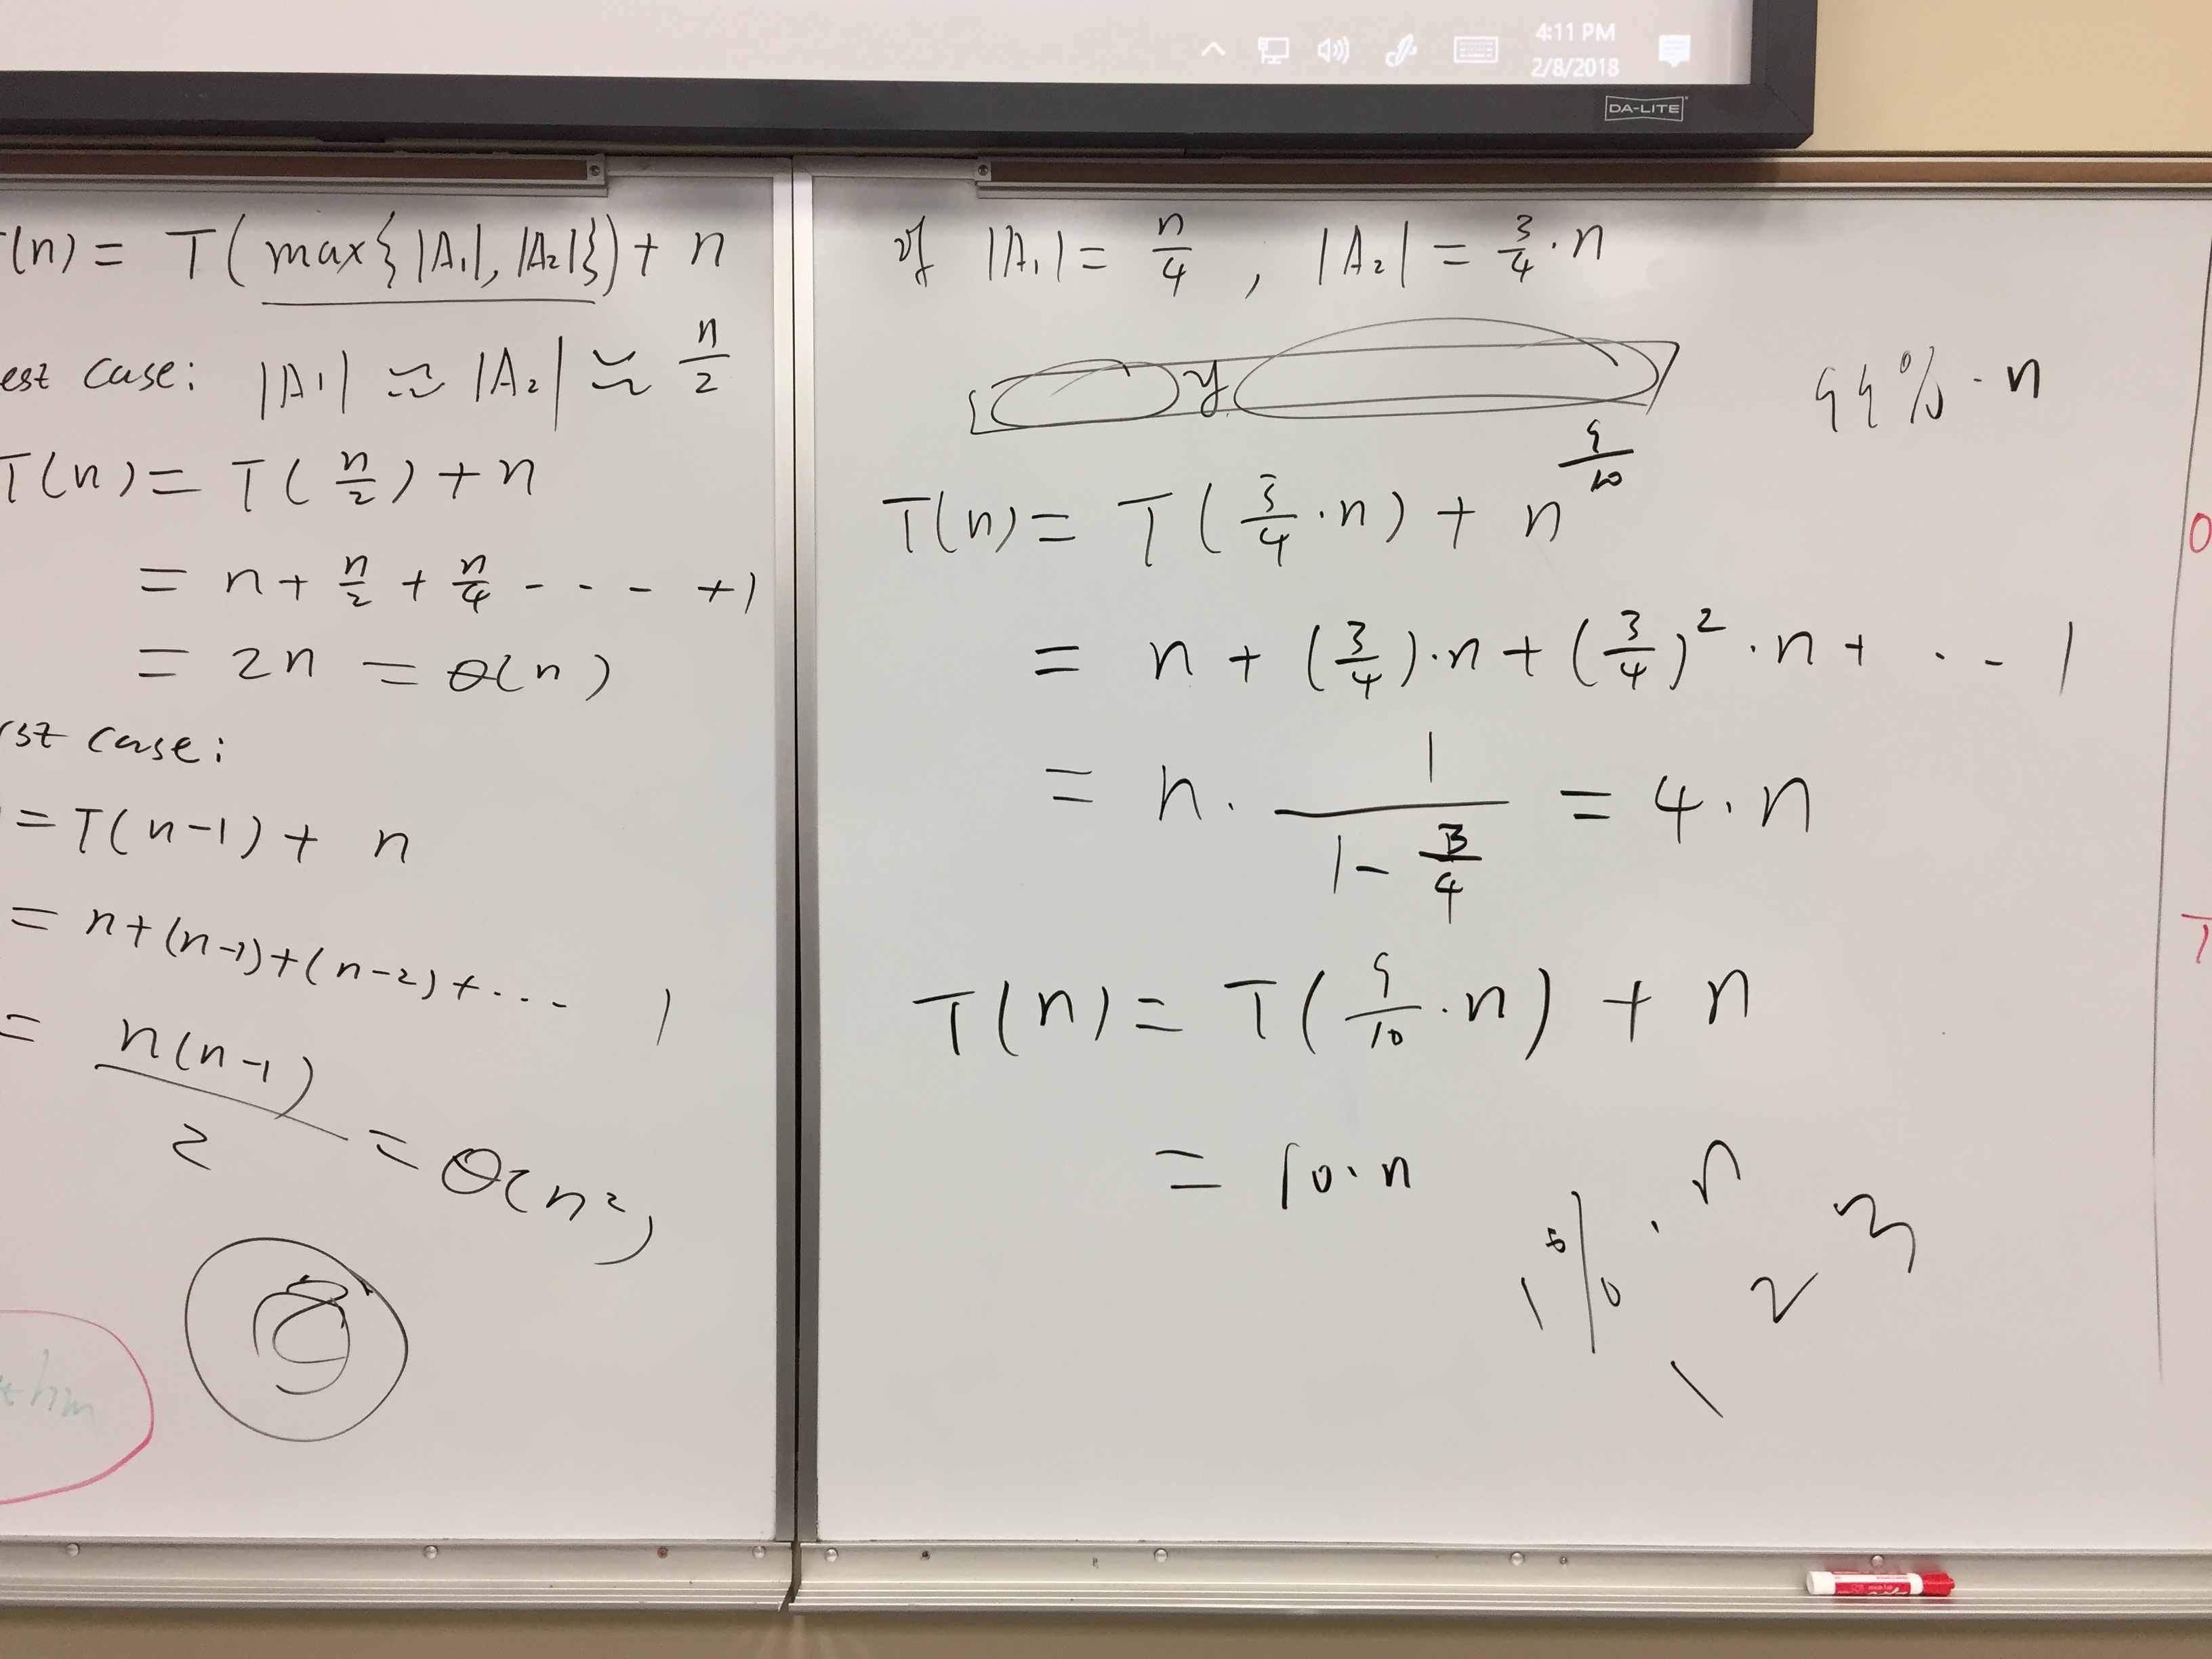 4:11 PM
2/8/2018
DA-LITE
(n) = T(max{|A₁|, |A₂|}) + n
est case: |A₁| ≈ |A₂| ≈ n/2
T(n) = T(n/2) + n
= n + n/2 + n/4 - - - - +1
= 2n = Θ(n)
rst case:
= T(n-1) + n
= n+(n-1)+(n-2)+ ... 1
= n(n-1)/2 = Θ(n²)
if |A₁| = n/4 , |A₂| = 3/4 · n
y
99% · n
9/10
T(n) = T(3/4 · n) + n
= n + (3/4)·n + (3/4)² · n + ... 1
= n · 1/(1 - 3/4) = 4 · n
T(n) = T(9/10 · n) + n
= 10 · n
1% · n
1 2 3